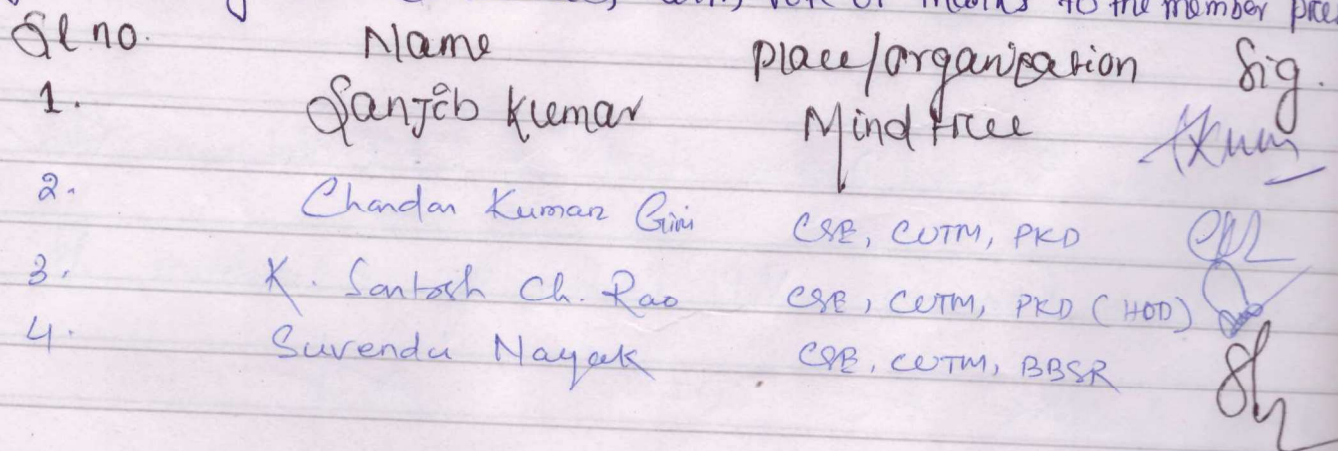 vote of thanks to the member
Sl no. Name Place/organization Sig.
1. Sanjib Kumar Mind tree
2. Chandan Kumar Giri CSE, CUTM, PKD
3. K. Santosh Ch. Rao CSE, CUTM, PKD (HOD)
4. Suvendu Nayak CSE, CUTM, BBSR